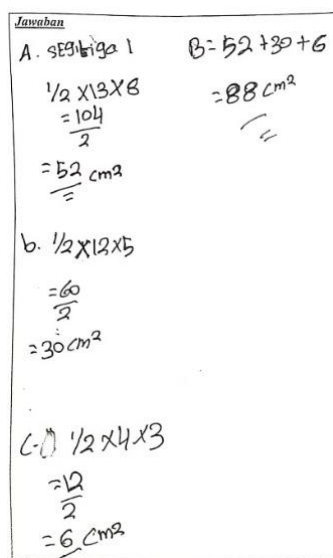 Jawaban
A. SEgitiga 1
1/2 X13X8
= 104
2
= 52 cm2
b. 1/2 X12X5
= 60
2
= 30 cm2
C. 1/2 X4X3
= 12
2
= 6 cm2
B = 52 +30 + 6
= 88 cm2